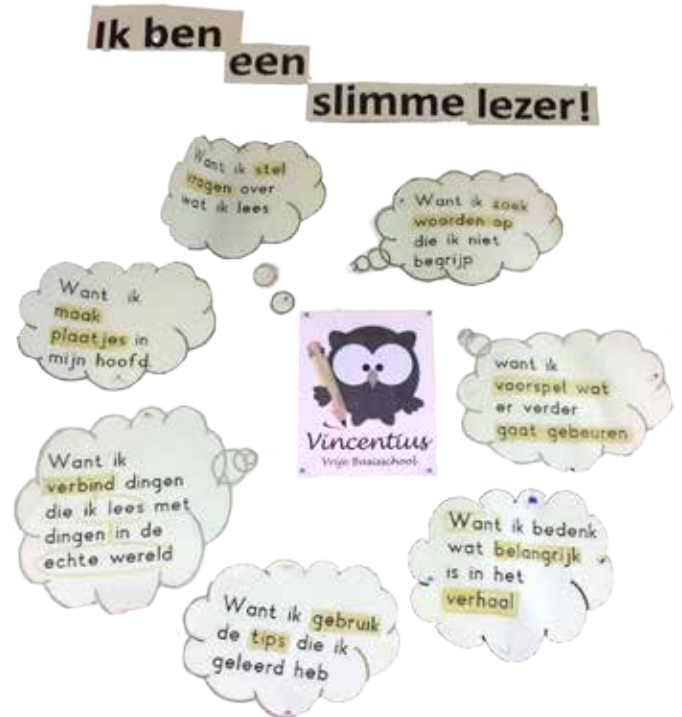 Ik ben
een
slimme lezer!
Want ik stel
vragen over
wat ik lees
Want ik zoek
woorden op
die ik niet
begrijp
Want ik
maak
plaatjes in
mijn hoofd
want ik
voorspel wat
er verder
gaat gebeuren
Vincentius
Vrije Basisschool
Want ik
verbind dingen
die ik lees met
dingen in de
echte wereld
Want ik bedenk
wat belangrijk
is in het
verhaal
Want ik gebruik
de tips die ik
geleerd heb